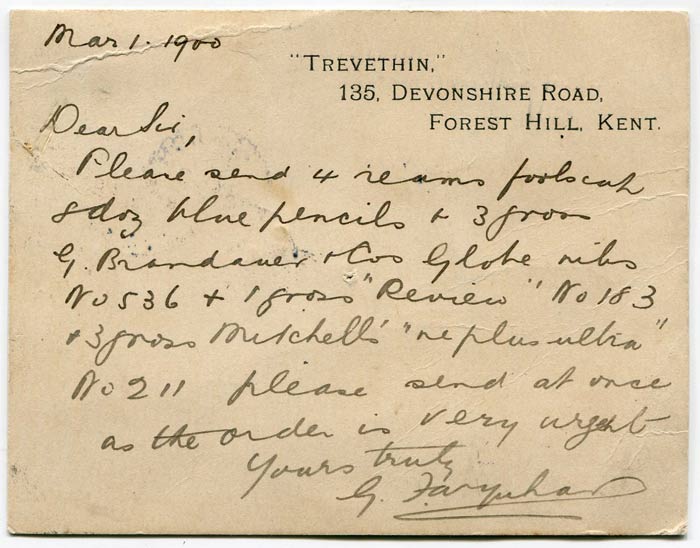 Mar 1. 1900
"TREVETHIN,"
135, DEVONSHIRE ROAD,
FOREST HILL, KENT.
Dear Sir,
Please send 4 reams foolscap
8 doz blue pencils + 3 gross
G. Brandauer + Cos Globe nibs
No 536 + 1 gross "Review" No 183
+ 3 gross Mitchell's "ne plus ultra"
No 211 please send at once
as the order is very urgent
Yours truly
G. Farquhar